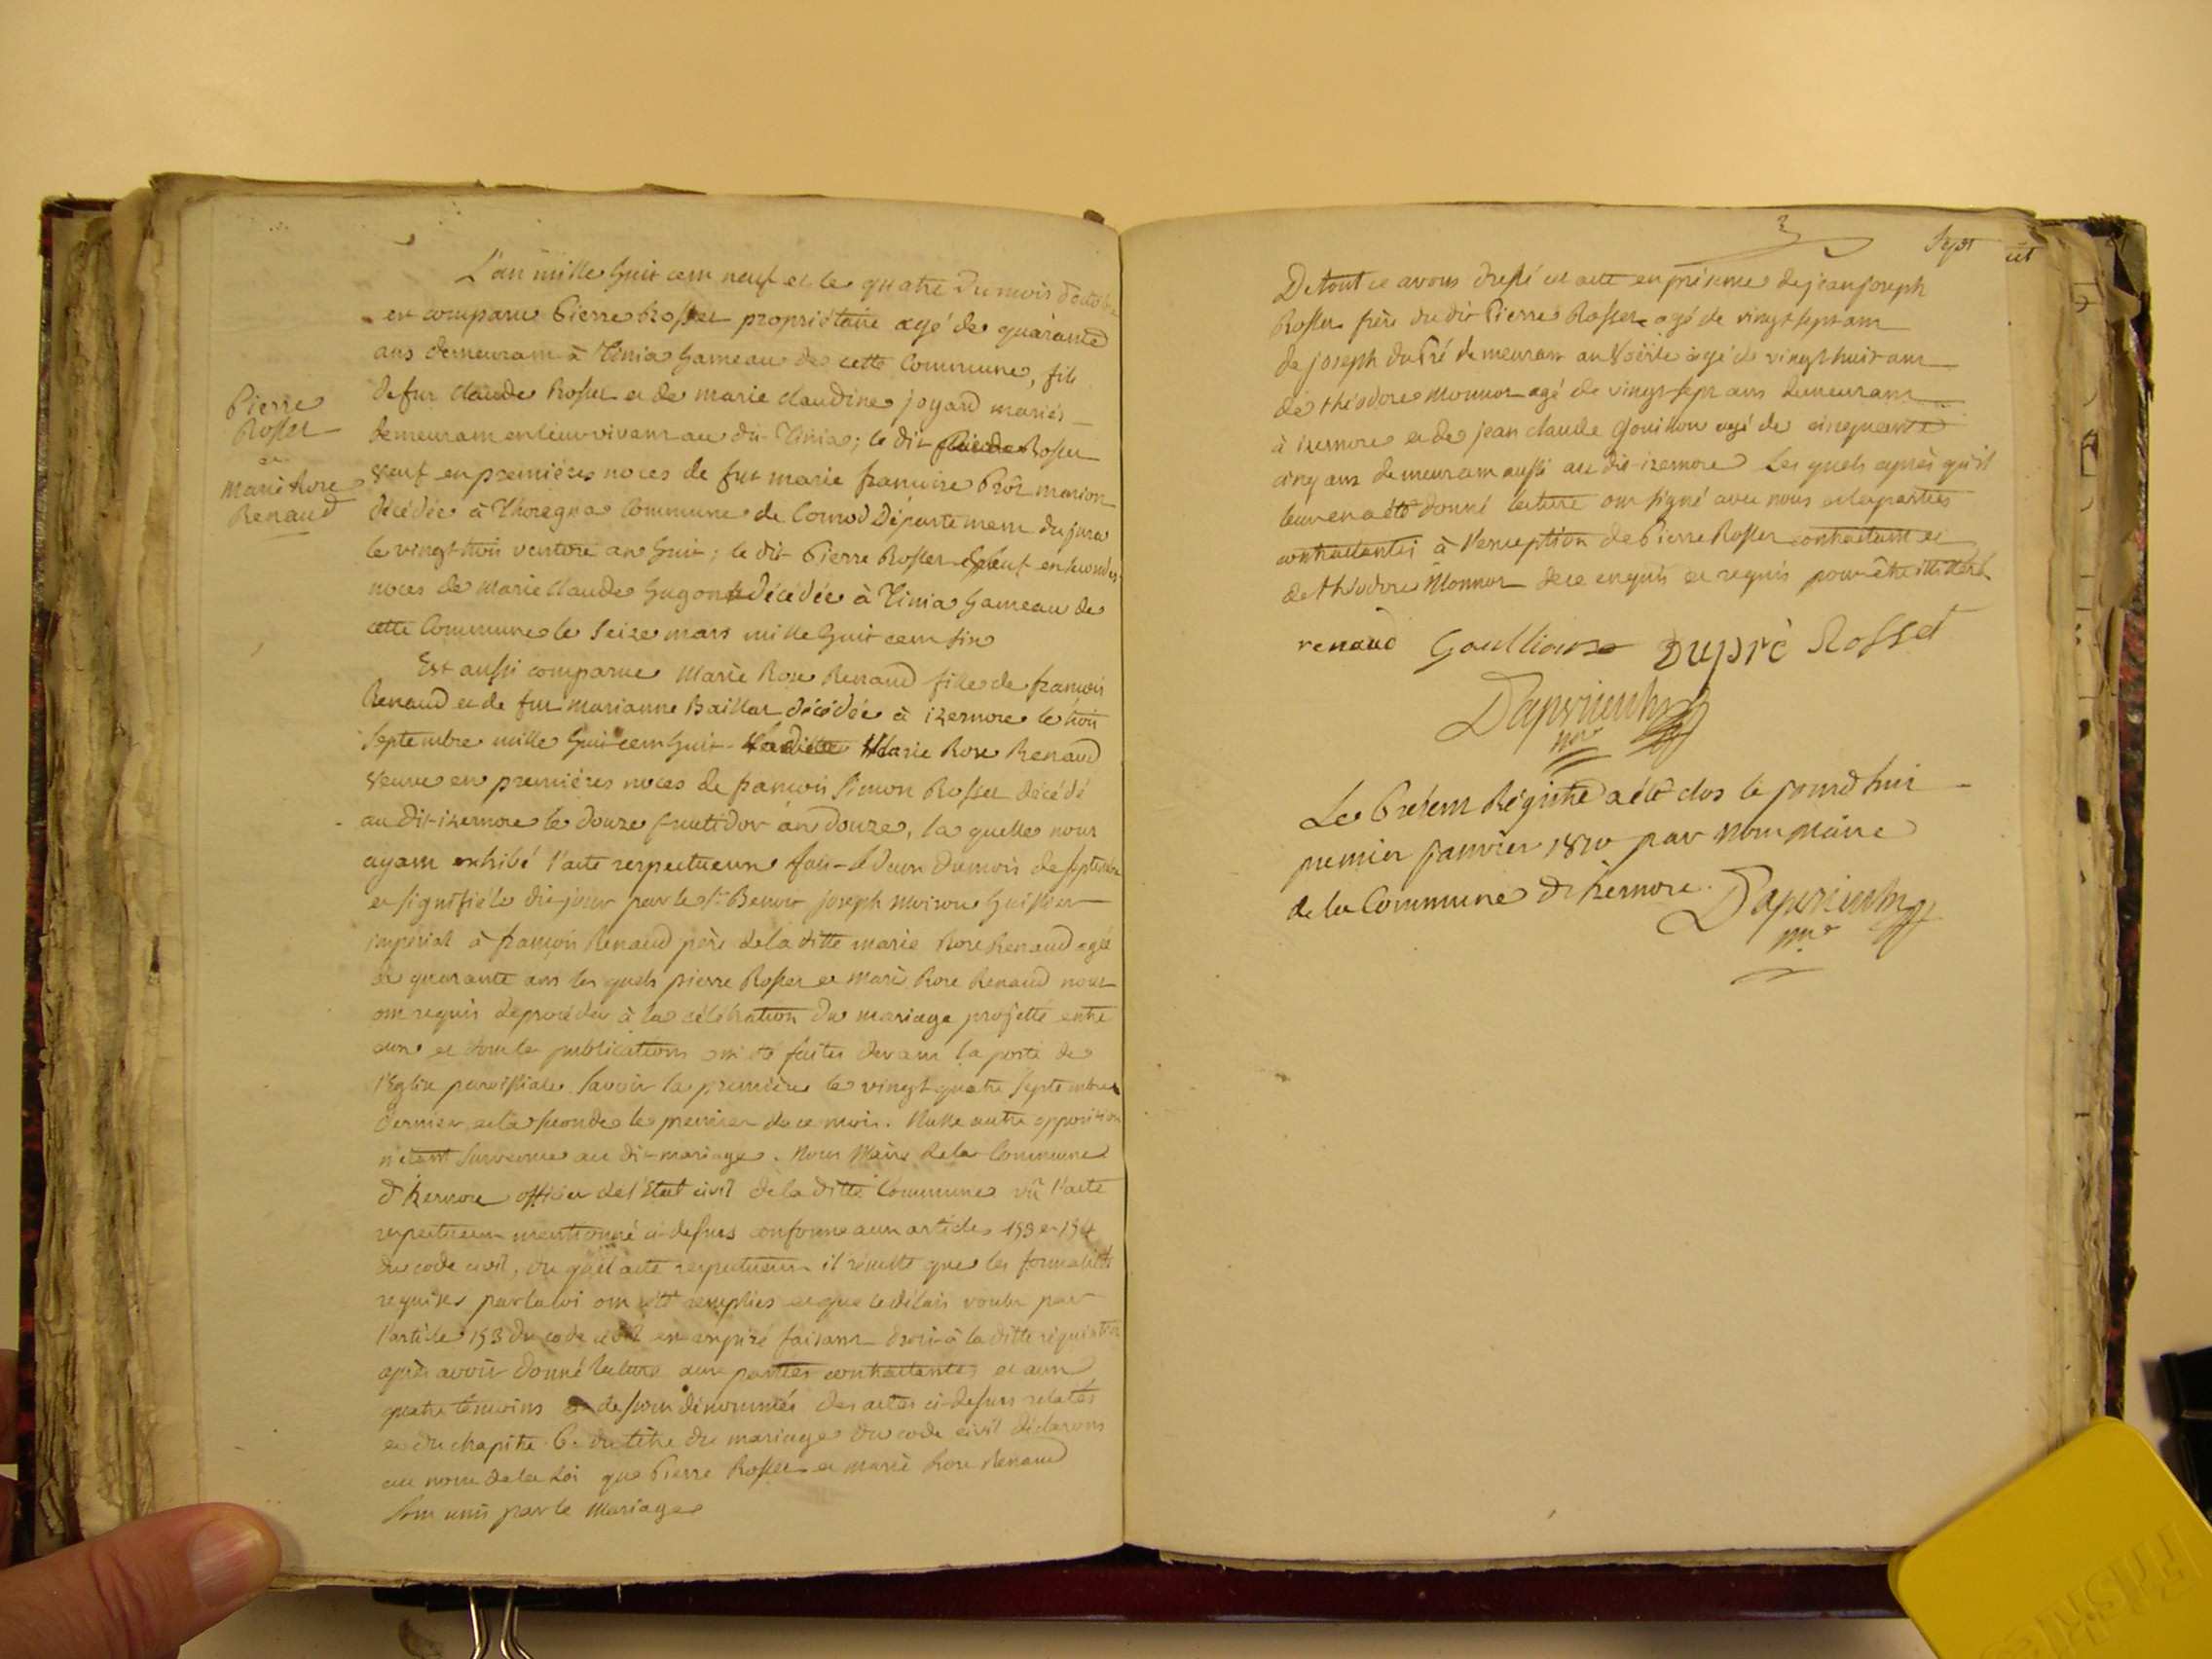 Pierre
Rosset
et
Marie Rose
Renaud
L'an mille huit cent neuf et le quatre du mois d'octobre
est comparu Pierre Rosset propriétaire agé de quarante
ans demeurant à Tinia hameau de cette Commune, fils
de fut Claude Rosset et de marie claudine joyard mariés
demeurant en leur vivant au dit Tinia; le dit Rosset
veuf en premières noces de fut marie francoise marion
décédée à Thoregna Commune de Cornod Département du jura
le vingt trois ventose an huit; le dit Pierre Rosset veuf en secondes
noces de Marie Claude hugon décédée à Tinia hameau de
cette Commune le seize mars mille huit cent six
Est aussi comparue Marie Rose Renaud fille de francois
Renaud et de fut marianne Baillat décédée à izernore le trois
septembre mille huit cent huit la ditte Marie Rose Renaud
veuve en premières noces de francois Simon Rosset décédé
au dit izernore le douze fructidor an douze, la quelle nous
ayant exhibé l'acte respectueux fait le deux du mois de septembre
et signifié le dit jour par le sr Benoit joseph moiron huissier
impérial à françois Renaud père de la ditte marie Rose Renaud agée
de quarante ans les quels pierre Rosset et Marie Rose Renaud nous
ont requis de procéder à la célébration du mariage projetté entre
eux et dont les publications ont été faites devant la porte de
l'Eglise paroissiale savoir la première le vingt quatre septembre
dernier et la seconde le premier de ce mois. Nulle autre opposition
n'etant survenue au dit mariage. Nous Maire de la Commune
d'Izernore officier de l'Etat civil de la ditte Commune vû l'acte
respectueux mentionné ci-dessus conforme aux articles 153 et 154
du code civil, du quel acte respectueux il résulte que les formalités
requises par la loi ont été remplies et que le délais voulu par
l'article 153 du code civil est expiré faisant droit à la ditte réquisition
après avoir donné lecture aux parties contractantes et aux
quatre témoins dessous dénommés des actes ci-dessus relatés
et du chapitre 6. du titre du mariage du code civil déclarons
au nom de la Loi que Pierre Rosset et marie Rose Renaud
sont unis par le Mariage
Sept
De tout ce avons dressé cet acte en présence de jean joseph
Rosset frère du dit Pierre Rosset agé de vingt sept ans
de joseph dupré demeurant au Voërle agé de vingt huit ans
de théodore Monnor agé de vingt sept ans demeurant
à izernore et de jean claude Gouillon agé de cinquante
cinq ans demeurant aussi au dit izernore les quels après qu'il
leur en a été donné lecture ont signé avec nous et les parties
contractantes à l'exception de Pierre Rosset contractant et
de théodore Monnor de ce enquis et requis pour être illitéré
renaud Goullioux Dupré Rosset
mre
Le Présent Régistre a été clos le jourd'hui
premier janvier 1810 par nous Maire
de la Commune d'Izernore.
mre
FRISK